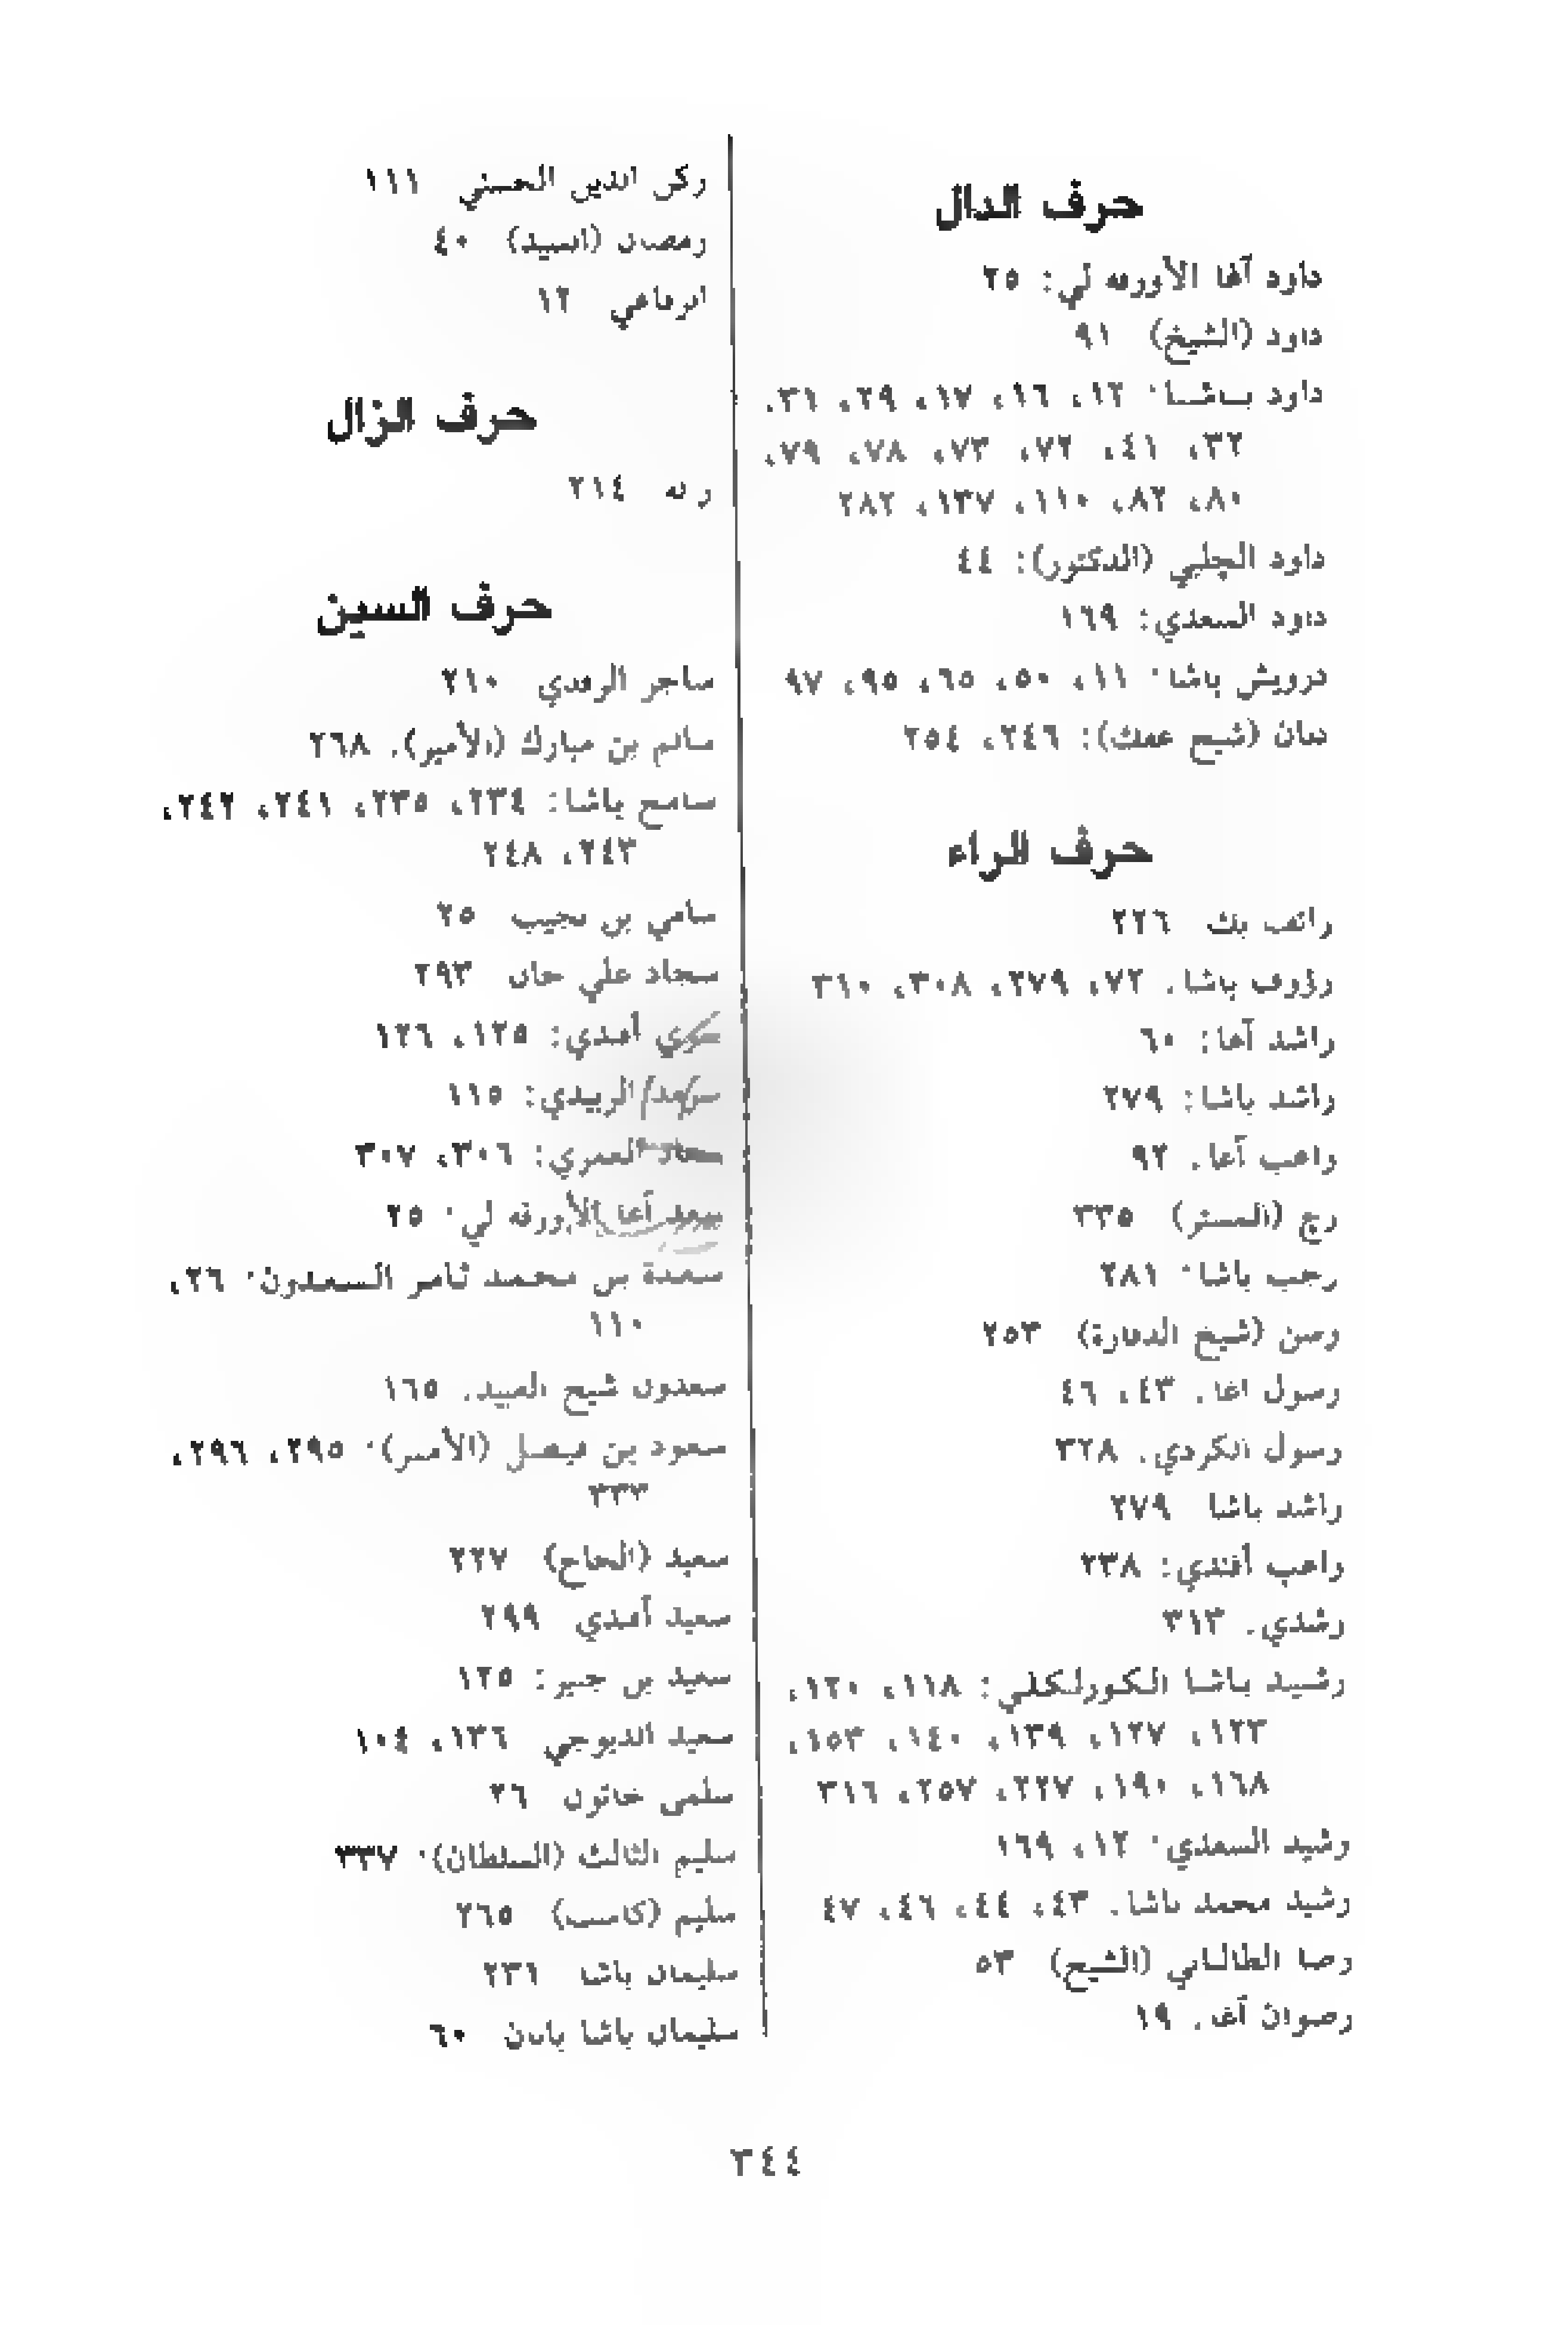 حرف الدال
داود آغا الأورفه لي: ٢٥
داود (الشيخ) ٩١
داود باشا: ١٢، ١٦، ١٧، ٢٩، ٣١،
٣٢، ٤١، ٧٢، ٧٣، ٧٨، ٧٩،
٨٠، ٨٢، ١١٠، ١٣٧، ٢٨٢
داود الچلبي (الدكتور): ٤٤
داود السعدي: ١٦٩
درويش باشا: ١١، ٥٠، ٦٥، ٩٥، ٩٧
(شيخ عفك): ٢٤٦، ٢٥٤
حرف الراء
رائف بك ٢٢٦
رؤوف باشا. ٧٢، ٢٧٩، ٣٠٨، ٣١٠
راشد آغا: ٦٠
راشد باشا: ٢٧٩
راغب آغا. ٩٢
رج (المستر) ٣٣٥
رجب باشا: ٢٨١
رصن (شيخ الدغارة) ٢٥٣
رسول اغا. ٤٣، ٤٦
رسول الكردي. ٣٢٨
راشد باشا ٢٧٩
راغب أفندي: ٢٣٨
رشدي. ٣١٣
رشيد باشا الكوزلكلي: ١١٨، ١٢٠،
١٢٣، ١٢٧، ١٣٩، ١٤٠، ١٥٣،
١٦٨، ١٩٠، ٢٢٧، ٢٥٧، ٣١٦
رشيد السعدي: ١٢، ١٦٩
رشيد محمد باشا. ٤٣، ٤٤، ٤٦، ٤٧
رضا الطالباني (الشيخ) ٥٣
رضوان آغا. ١٩
ركن الدين الحسني ١١١
رمضان (السيد) ٤٠
الرفاعي ١٢
حرف الزال
٢١٤
حرف السين
ساجر الرفدي ٢١٠
سالم بن مبارك (الأمير). ٢٦٨
سامح باشا: ٢٣٤، ٢٣٥، ٢٤١، ٢٤٢،
٢٤٣، ٢٤٨
سامي بن نجيب ٢٥
سجاد علي خان ٢٩٣
أفندي: ١٢٥، ١٢٦
الزبيدي: ١١٥
العمري: ٣٠٦، ٣٠٧
آغا الأورفه لي: ٢٥
سعدة بن محمد ثامر السعدون: ٢٦،
١١٠
سعدون شيخ العبيد. ١٦٥
سعود بن فيصل (الأمير): ٢٩٥، ٢٩٦،
٣٣٣
سعيد (الحاج) ٢٢٧
سعيد أفندي ٢٩٩
سعيد بن جبير: ١٢٥
سعيد الديوجي ١٣٦، ١٠٤
سلمى خاتون ٢٦
سليم الثالث (السلطان): ٣٣٧
سليم (كاسب) ٢٦٥
سليمان باشا ٢٣٦
سليمان باشا بابان ٦٠
٣٤٤